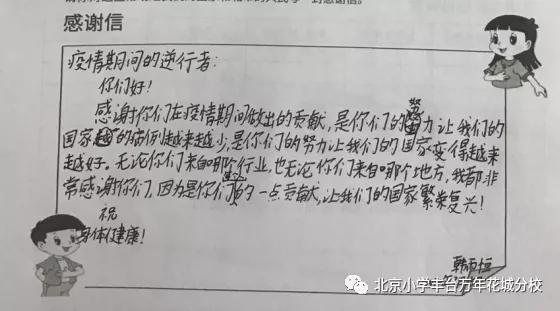 感谢信
疫情期间的逆行者：
你们好！
感谢你们在疫情期间做出的贡献，是你们的努力让我们的
国家的病例越来越少，是你们的努力让我们的国家变得越来
越好。无论你们来自哪个行业，也无论你们来自哪个地方，我都非
常感谢你们，因为是你们的一点贡献，让我们的国家繁荣复兴！
祝
身体健康！
韩雨恒
北京小学丰台万年花城分校